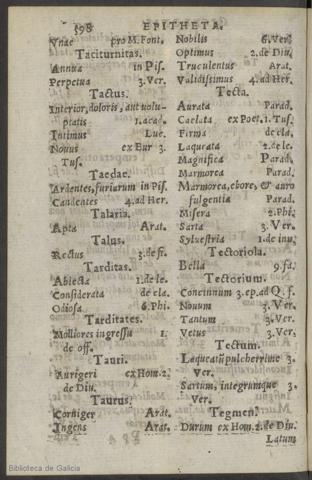 598 EPITHETA.
Vnae pro M. Font.
Taciturnitas.
Annua in Pis.
Perpetua 3. Ver.
Tactus.
Interior, doloris, aut volu-
ptatis 1. acad.
Intimus Luc.
Nouus ex Eur 3.
Tus.
Taedae.
Ardentes, furiarum in Pis.
Candentes 4. ad Her.
Talaria.
Apta Arat.
Talus.
Rectus 3. de fi.
Tarditas.
Abiecta 1. de le.
Considerata de cla.
Odiosa 6. Phi.
Tarditates.
Molliores ingressu 1.
de off.
Tauri.
Aurigeri ex Hom. 2.
de Diu.
Taurus.
Corniger Arat.
Ingens Arat.
Nobilis 6. Ver.
Optimus 2. de Diu.
Truculentus Arat.
Validissimus 4. ad Her.
Tecta.
Aurata Parad.
Caelata ex Poet. 1. Tus.
Firma de cla.
Laqueata 2. de le.
Magnifica Parad.
Marmorea Parad.
Marmorea, ebore, & auro
fulgentia Parad.
Misera 2. Phi.
Sarta 3. Ver.
Syluestria 1. de inu.
Tectoriola.
Bella 9. fa.
Tectorium.
Concinnum 3. ep. ad Q. f.
Nouum 3. Ver.
Tantum 3. Ver.
Vetus 3. Ver.
Tectum.
Laqueatū pulcherrime 3.
Ver.
Sartum, integrumque 3.
Ver.
Tegmen.
Durum ex Hom. 2. de Diu.
Latum
Biblioteca de Galicia